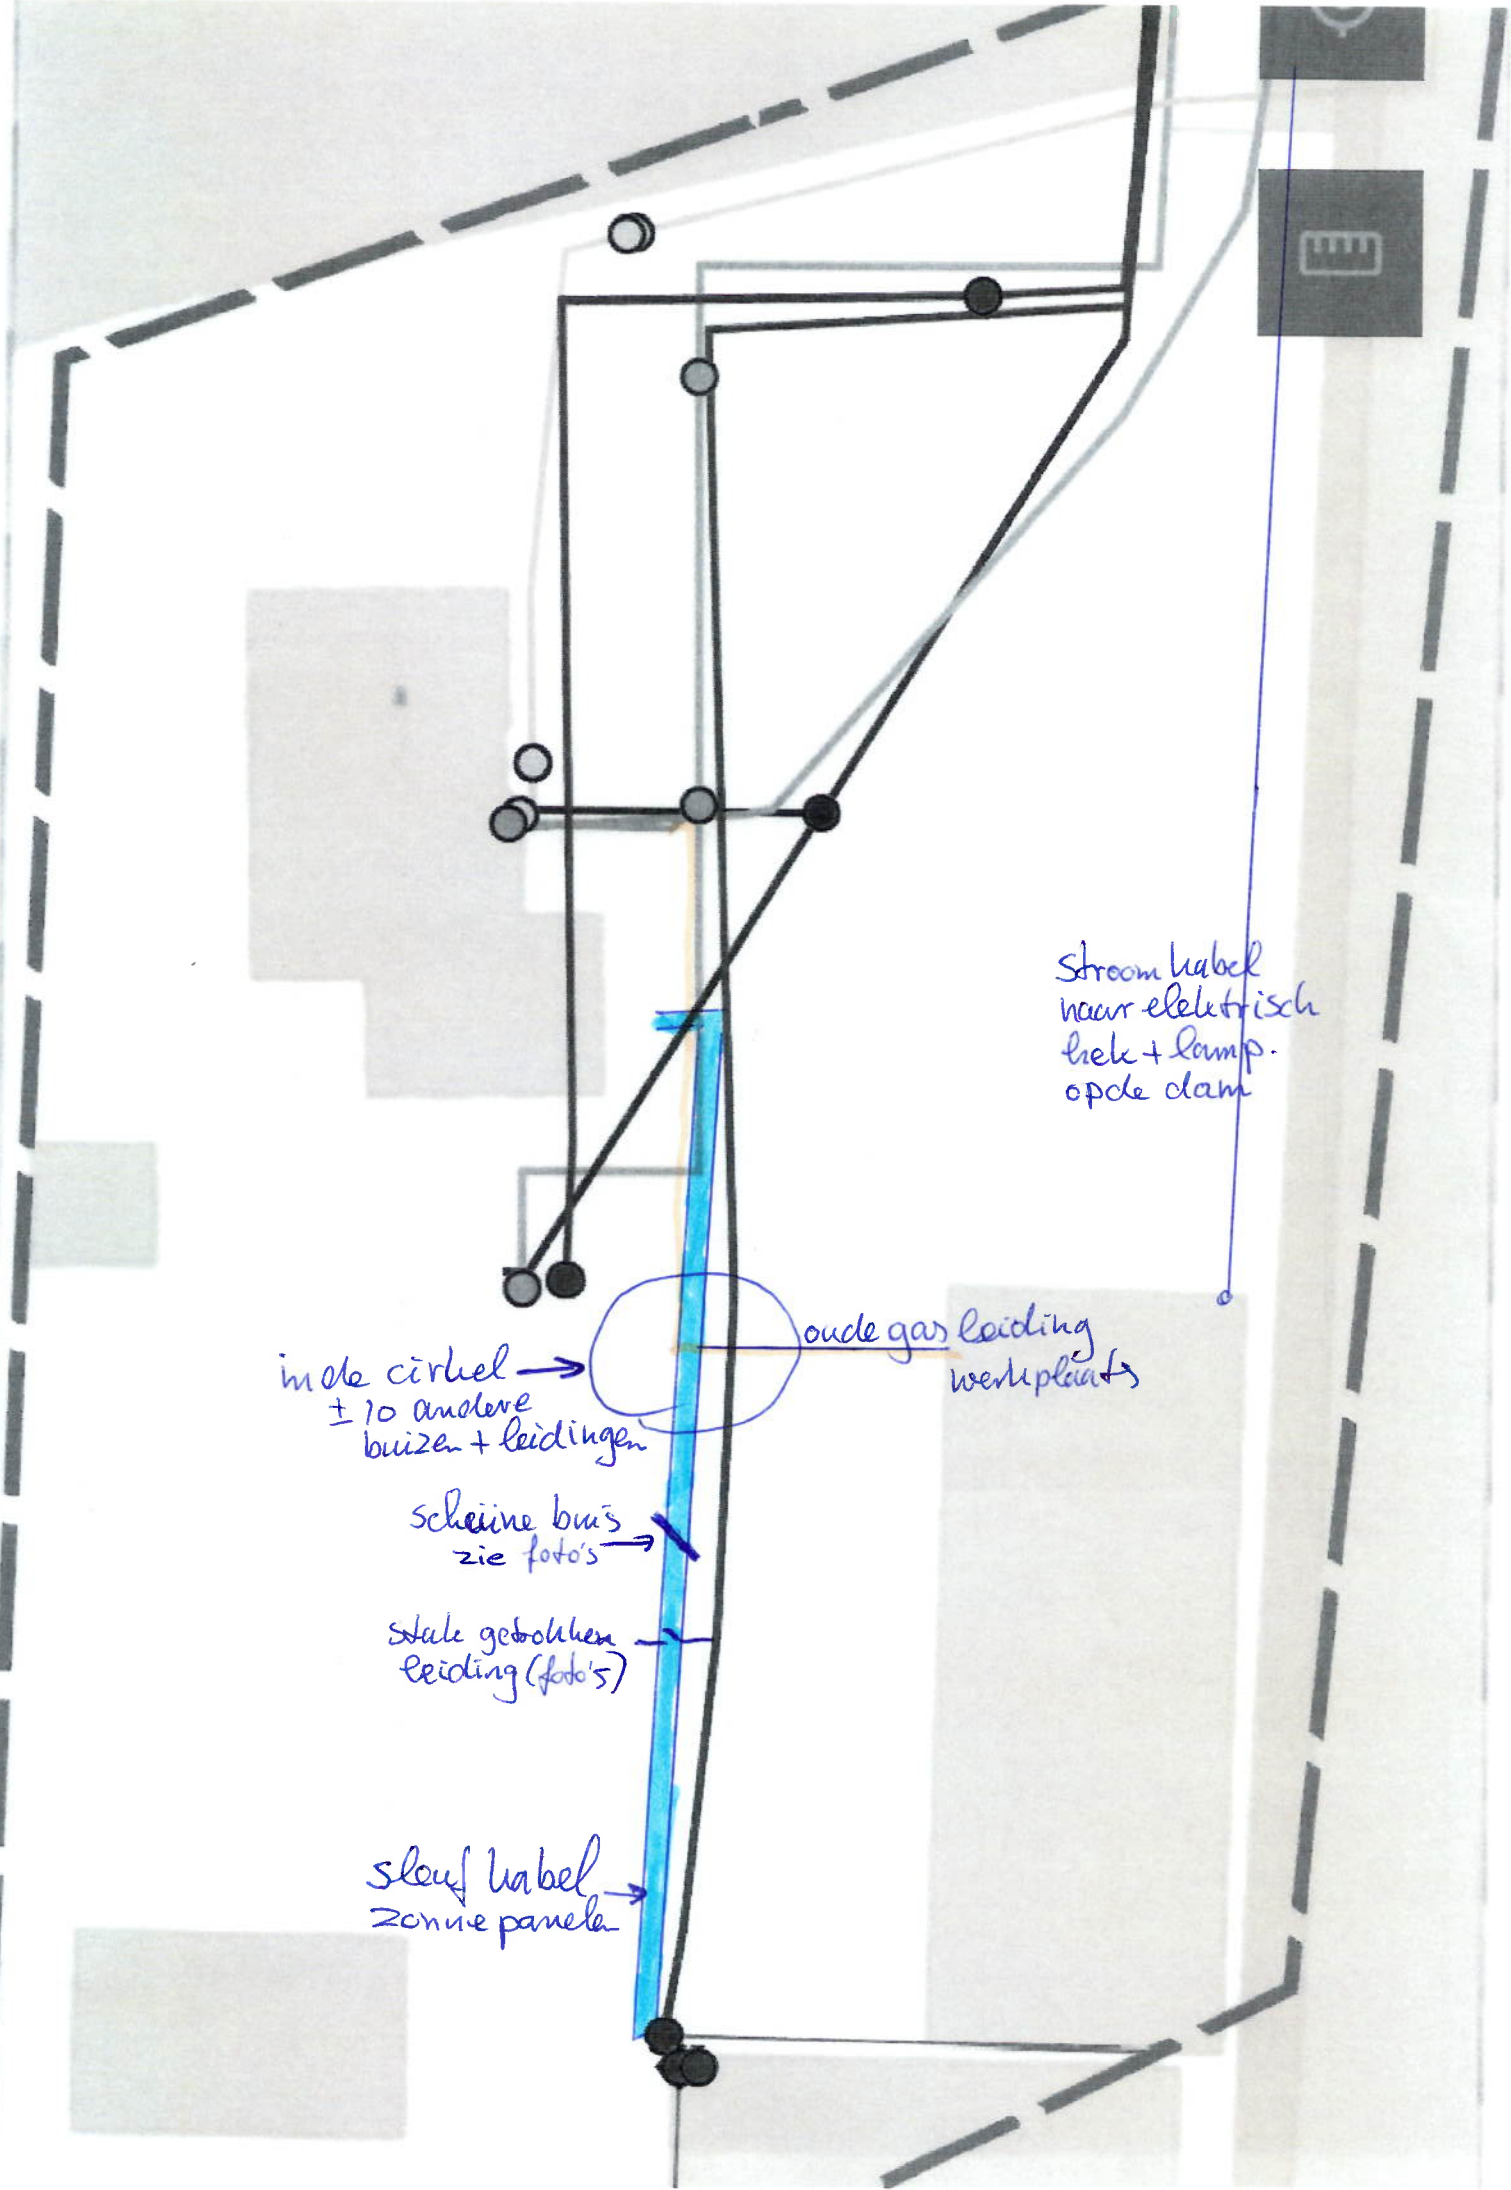 stroom kabel
naar elektrisch
hek + lamp.
op de dam
oude gas leiding
werkplaats
in de cirkel
± 10 andere
buizen + leidingen
schuine buis
zie foto's
stuk getrokken
leiding (foto's)
sleuf kabel
zonnepanelen